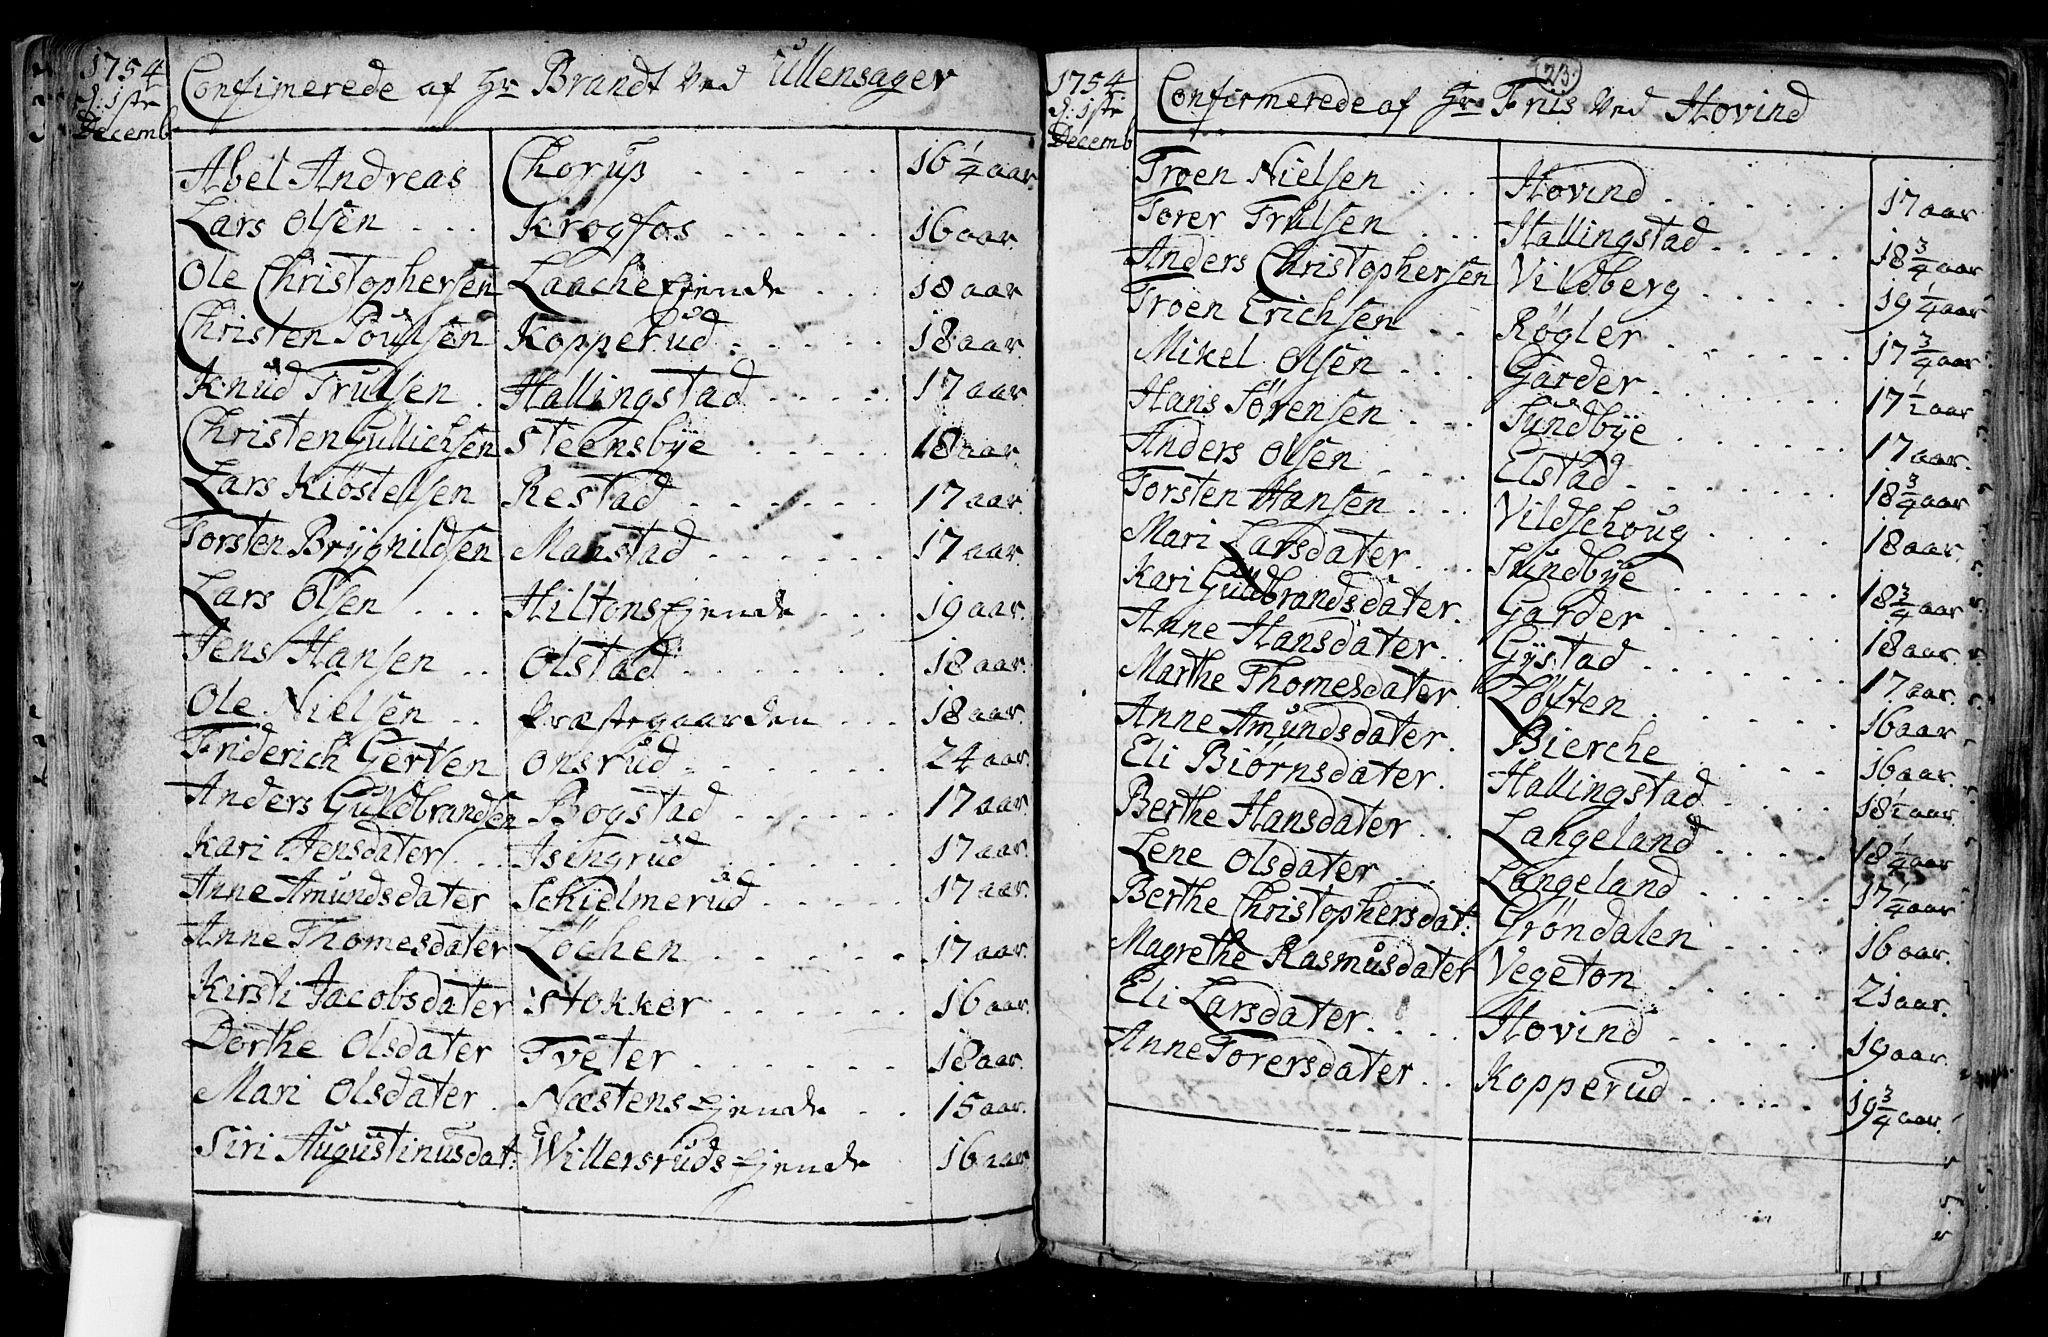 1754
d. 1ste
Decemb
Confimerede af Hr Brandt Ved Ullensager
Abel Andreas Chorup 16 1/4 aar
Lars Olsen Krogfos 16 aar
Ole Christophersen Laache Ejende 18 aar
Christen Poulsen Kopperud 18 aar
Knud Trulsen Hallingstad 17 aar
Christen Gullichsen Steensbÿe 18 aar
Lars Kiöstelsen Restad 17 aar
Torsten Brÿgnildsen Manstad 17 aar
Lars Olsen Hiltons Ejende 19 aar.
Jens Hansen Olstad 18 aar.
Ole Nielsen Præstegaarden 18 aar
Friderich Gertsen Onsrud 24 aar
Anders Guldbrandsen Bogstad 17 aar
Kari Jensdater Isingrud 17 aar
Anne Amundsdater Schielmerud 17 aar
Anne Thomesdater Löchen 17 aar.
Kirsti Jacobsdater Stokker 16 aar.
Dorthe Olsdater Tveter 18 aar.
Mari Olsdater Næstens Ejende 15 aar.
Siri Augustinusdat: Willersruds Ejende 16 aar
23.
1754
d. 1ste
Decemb
Confirmerede af Hr Friis Ved Hovind
Troen Nielsen Hovind 17 aar
Torer Trulsen Hallingstad 18 3/4 aar
Anders Christophersen Vildberg 19 1/4 aar
Troen Erichsen Røgler 17 3/4 aar
Mikel Olsen Garder 17 1/2 aar
Hans Sørensen Sundbÿe 17 aar.
Anders Olsen Elstad 18 3/4 aar
Torsten Hansen Vildsehoug 18 aar.
Mari Larsdater Sundbÿe 18 3/4 aar
Kari Gudbrandsdater. Garder 18 aar.
Anne Hansdater Gÿstad 17 aar.
Marthe Thomesdater Löften 16 aar.
Anne Amundsdater. Bierche 16 aar.
Eli Biørnsdater. Hallingstad 18 1/2 aar
Berthe Hansdater Langeland 18 1/4 aar
Lene Olsdater Langeland 17 1/4 aar
Berthe Christophersdat: Grøndalen 16 aar.
Magrethe Rasmusdater Vegeton 21 aar.
Eli Larsdater Hovind 19 aar.
Anne Torersdater Kopperud 19 3/4 aar.